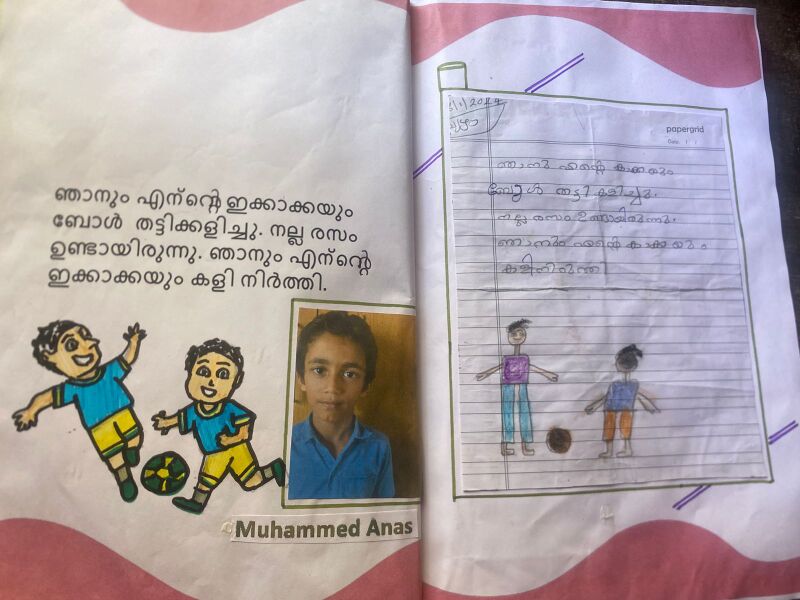 ഞാനും എന്റെ ഇക്കാക്കയും
ബോൾ തട്ടിക്കളിച്ചു. നല്ല രസം
ഉണ്ടായിരുന്നു. ഞാനും എന്റെ
ഇക്കാക്കയും കളി നിർത്തി.
Muhammed Anas
papergrid
Date: / /
ഞാനും എന്റെ കാക്കയും
ബോൾ തട്ടി കളിച്ചു.
നല്ല രസം ഉണ്ടായിരുന്നു.
ഞാനും എന്റെ കാക്കയും